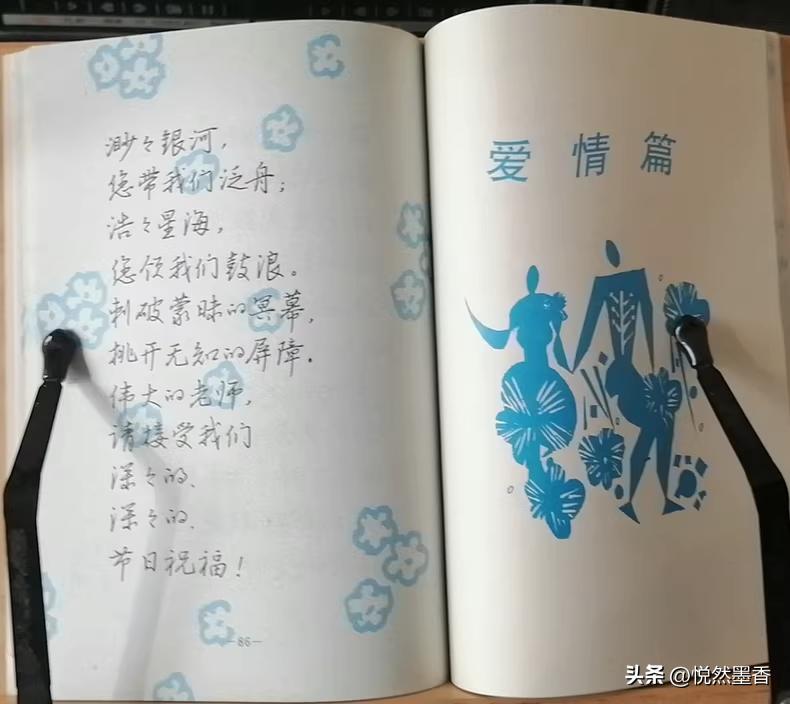 渺々银河，
您带我们泛舟；
浩々星海，
您领我们鼓浪。
刺破蒙昧的冥幕，
挑开无知的屏障．
伟大的老师，
请接受我们
深々的、
深々的、
节日祝福！
—86—
爱情篇
头条 @悦然墨香